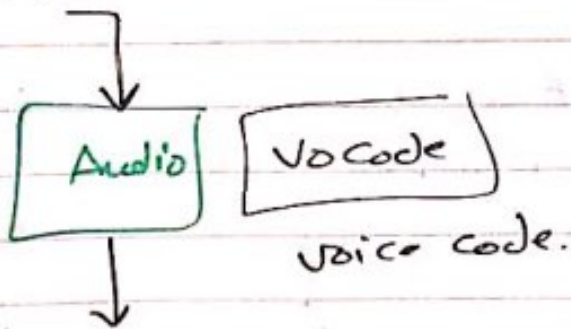 Audio
VoCode
voice code.